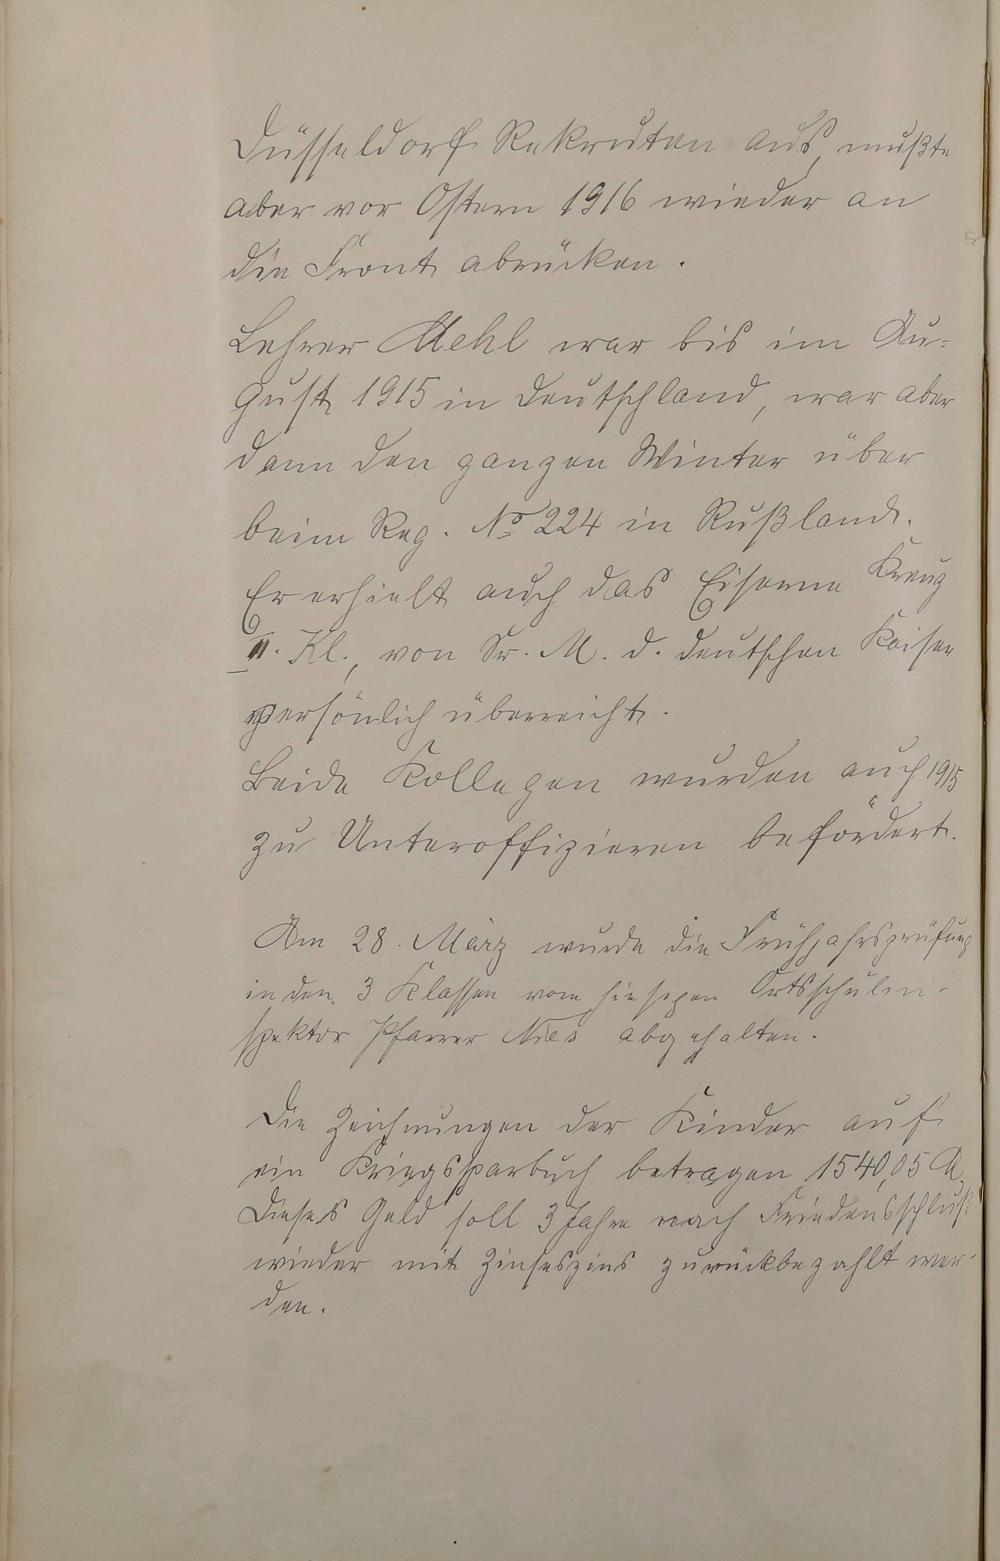 Düsseldorf Rekruten aus, mußte
aber vor Ostern 1916 wieder an
die Front abrücken.
Lehrer Mehl war bis im Au-
gust 1915 in Deutschland, war aber
dann den ganzen Winter über
beim Reg. No 224 in Rußland.
Er erhielt auch das Eiserne Kreuz
II. Kl., von Sr. M. d. deutschen Kaiser
persönlich überreicht.
Beide Kollegen wurden auch 1915
zu Unteroffizieren befördert.
Am 28. März wurde die Frühjahrsprüfung
in den 3 Klassen vom hiesigen Ortsschulin-
spektor Pfarrer Nies abgehalten.
Die Zeichnungen der Kinder auf
ein Kriegssparbuch betragen 1540,05 M,
Dieses Geld soll 3 Jahre nach Friedensschluß
wieder mit Zinseszins zurückbezahlt wer-
den.